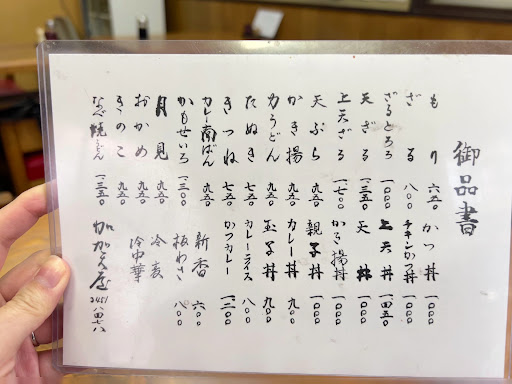 御品書
もり 六五〇
ざる 八〇〇
ざるとろろ 一〇〇〇
天ざる 一三五〇
上天ざる 一七〇〇
天ぷら 九五〇
かき揚 九五〇
力うどん 九五〇
たぬき 七五〇
きつね 七五〇
カレー南ばん 九五〇
かもせいろ 一三〇〇
月見 九五〇
おかめ 九五〇
きのこ 九五〇
なべ焼うどん 一三五〇
かつ丼 一〇〇〇
チキンかつ丼 一〇〇〇
上天丼 一四五〇
天丼 一〇〇〇
かき揚丼 一〇〇〇
親子丼 一〇〇〇
カレー丼 九〇〇
玉子丼 九〇〇
カレーライス 八〇〇
かつカレー 一二〇〇
新香 六〇〇
板わさ 八〇〇
冷麦
冷中華